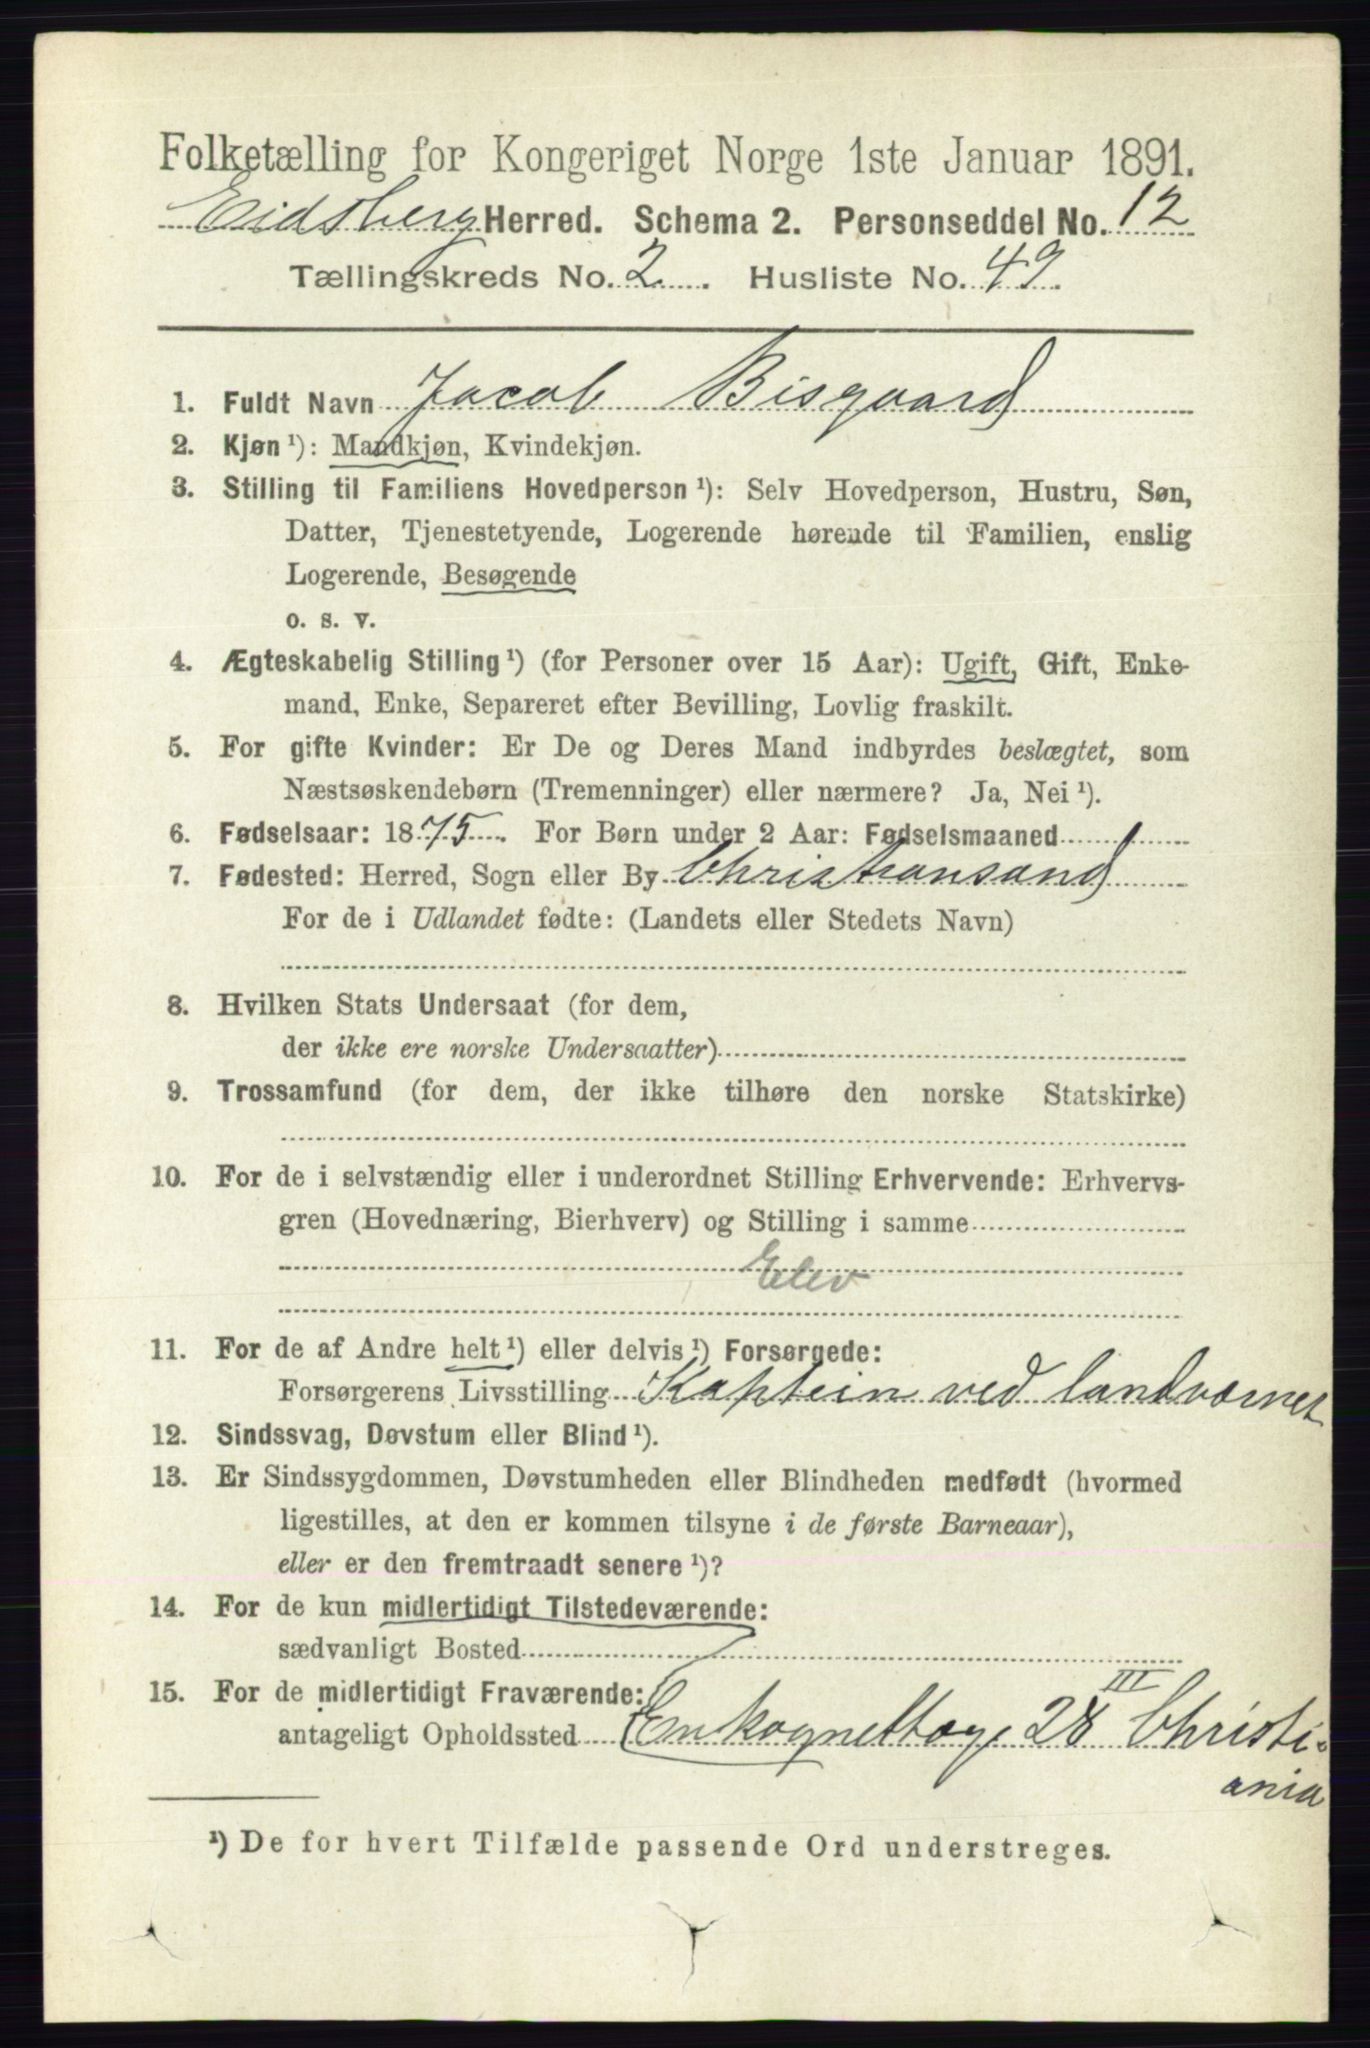 Folketælling for Kongeriget Norge 1ste Januar 1891.
Eidsberg Herred. Schema 2. Personseddel No. 12
Tællingskreds No. 2. Husliste No. 49.
1. Fuldt Navn Jacob Bisgaard
2. Kjøn ¹): Mandkjøn, Kvindekjøn.
3. Stilling til Familiens Hovedperson ¹): Selv Hovedperson, Hustru, Søn,
Datter, Tjenestetyende, Logerende hørende til Familien, enslig
Logerende, Besøgende
o. s. v.
4. Ægteskabelig Stilling ¹) (for Personer over 15 Aar): Ugift, Gift, Enke-
mand, Enke, Separeret efter Bevilling, Lovlig fraskilt.
5. For gifte Kvinder: Er De og Deres Mand indbyrdes beslægtet, som
Næstsøskendebørn (Tremenninger) eller nærmere? Ja, Nei ¹).
6. Fødselsaar: 1875. For Børn under 2 Aar: Fødselsmaaned
7. Fødested: Herred, Sogn eller By Christiansand
For de i Udlandet fødte: (Landets eller Stedets Navn)
8. Hvilken Stats Undersaat (for dem,
der ikke ere norske Undersaatter)
9. Trossamfund (for dem, der ikke tilhøre den norske Statskirke)
10. For de i selvstændig eller i underordnet Stilling Erhvervende: Erhvervs-
gren (Hovednæring, Bierhverv) og Stilling i samme
Elev
11. For de af Andre helt ¹) eller delvis ¹) Forsørgede:
Forsørgerens Livsstilling Kaptein ved landværnet
12. Sindssvag, Døvstum eller Blind ¹).
13. Er Sindssygdommen, Døvstumheden eller Blindheden medfødt (hvormed
ligestilles, at den er kommen tilsyne i de første Barneaar),
eller er den fremtraadt senere ¹)?
14. For de kun midlertidigt Tilstedeværende:
sædvanligt Bosted
15. For de midlertidigt Fraværende:
antageligt Opholdssted 28 III Christi-
ania
¹) De for hvert Tilfælde passende Ord understreges.